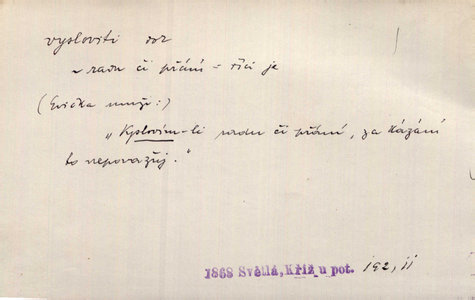 vysloviti dok
~ radu či přání = říci je
(Evička muži:)
„Vyslovím-li radu či přání, za kázání
to nepovažuj."
1868 Světlá, Kříž u pot. 192, ii